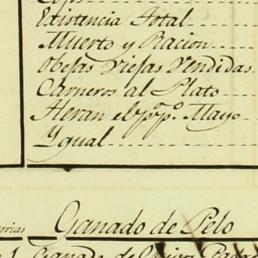 Existencia Total
Muerto y Racion
Obejas Viejas Vendidas
Carneros al Plato
Heran el pr. pº. Mayo
Ygual
Ganado de Pelo